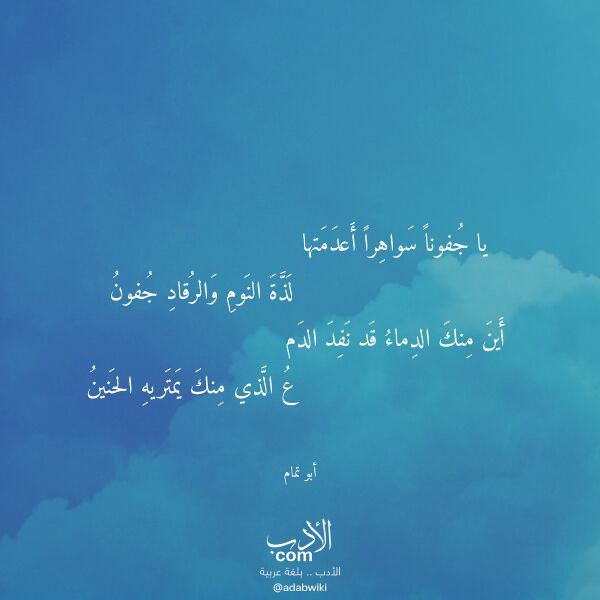 يا جُفوناً سَواهِراً أَعدَمَتها
لَذَّةَ النَومِ وَالرُقادِ جُفونُ
أَينَ مِنكَ الدِماءُ قَد نَفِدَ الدَم
عُ الَّذي مِنكَ يَمتَريهِ الحَنينُ
أبو تمام
الأدب
com
الأدب .. بلغة عربية
@adabwiki